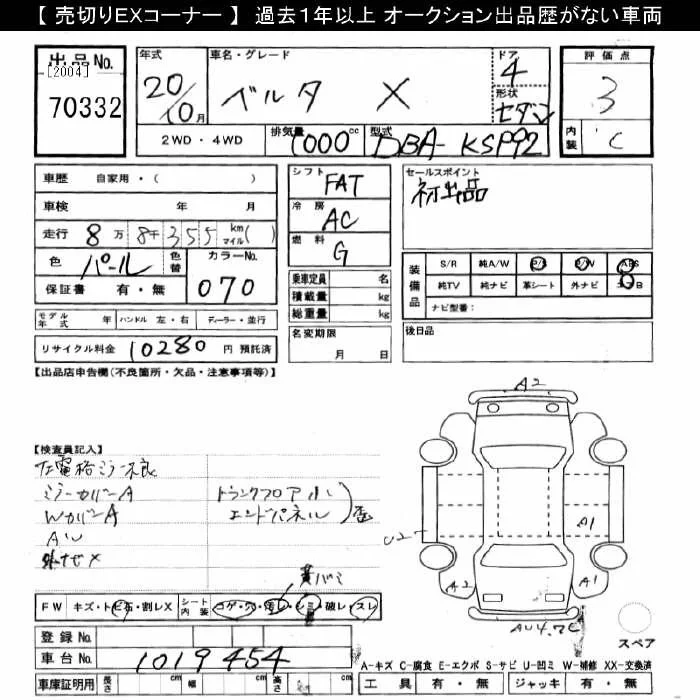 【 売切りEXコーナー 】 過去1年以上 オークション出品歴がない車両
出品No.
[2004]
70332
年式
20/10月
車名・グレード
ベルタ X
ドア
4
形状
セダン
評価点
3
内装
C
2WD・4WD
排気量
1000cc
型式
DBA-KSP92
車歴 自家用・( )
車検 年 月
走行 8万 8千 355 km マイル( )
色 パール 色替
カラーNo.
070
保証書 有・無
シフト
FAT
冷房
AC
燃料
G
セールスポイント
初出品
装備品
S/R 純A/W P/S P/W ABS
純TV 純ナビ 革シート 外ナビ エアB
ナビ型番:
乗車定員 名
積載量 kg
総重量 kg
モデル年式 年 ハンドル 左・右 ディーラー・並行
リサイクル料金 10280 円 預託済
名変期限
月 日
後日品
【出品店申告欄(不良箇所・欠品・注意事項等)】
【検査員記入】
左電格ミラー不良
ミラーカバーA
WカバーA
AU
外ナビX
トランクフロア 小
エンドパネル
歪
黄バミ
A2
A1
U2
A2
A1
AU4.7E
スペア
FW キズ・トビ石・割レX
シート内装 コゲ・穴・汚レ・シミ・破レ・スレ
登録No.
車台No. 1019454
車庫証明用 長さ cm 幅 cm 高さ cm
A-キズ C-腐食 E-エクボ S-サビ U-凹ミ W-補修 XX-交換済
工具 有・無 ジャッキ 有・無